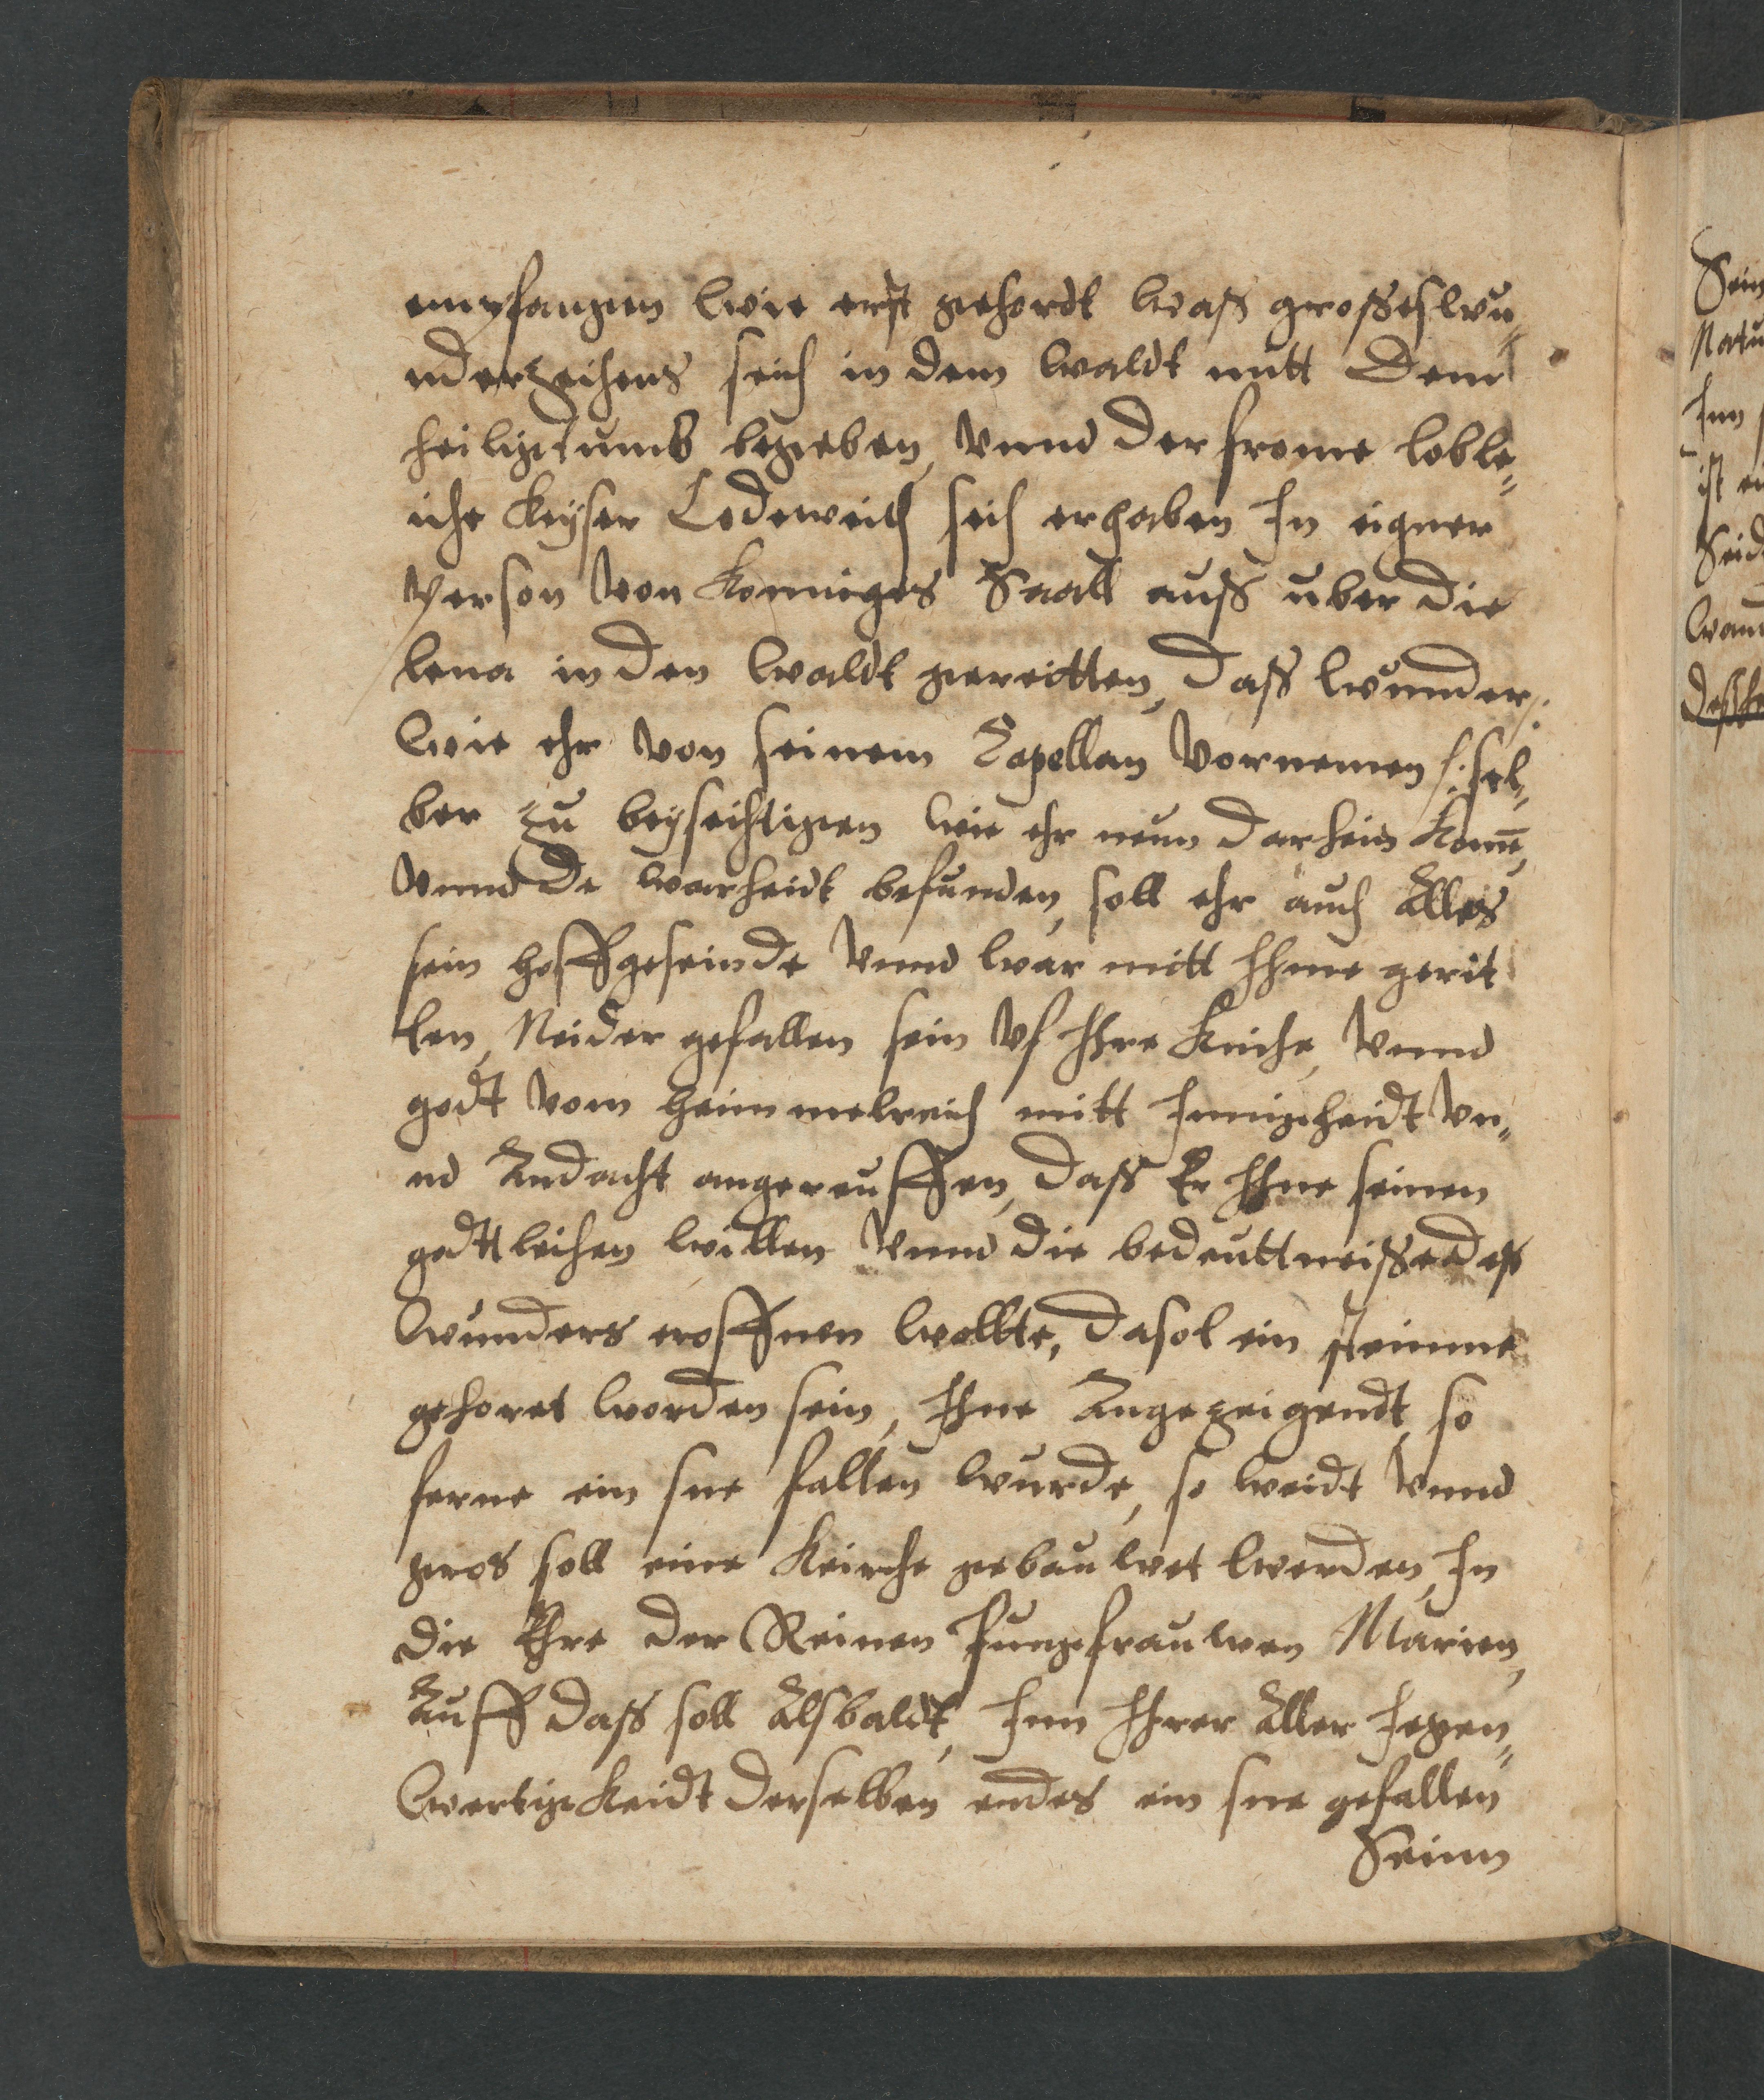 empfangen wie erst gehordt wass grosseswu„
nderzeichens seich in dem waldt mitt Dem
heiligtumb begeben, Vnnd der frome loble„
iche Keyser Lodeweich seich erhaben In eigner
Person von Konniges Saall auss uber die
lena in den waldt gereitten, Dass wunder /:
wie ehr von seinem Capellan vornemen :/ sel„
ber zu beyseichtigen wie ehr nuun darhein Kom̄e,
Vnnd De warheidt befunden, soll ehr auch Alles
sein Hoffgeseinde Vnnd war mitt Ihme gerit
ten, Neider gefallen sein Vf Ihre Kniche, Vnnd
godt vom Heimmelreich mitt Innigcheidt Vn„
nd Andacht angereuffen, Dass Er Ihne seinen
gottleichen willen Vnnd die bedeuttneisse dess
wunders eroffnen wollte, Dasol ein steimme
gehoret worden sein, Ihne Angezeigendt, so
ferne ein sne fallen wurde, so weidt Vnnd
gros soll eine Keirche gebauwet werden, In
die Ehre der Reinen Jungfrauwen Marien,
Auff dass soll Alsbaldt, Inn Ihrer Aller Jegen„
wertigkeidt derselben endes ein sne gefallen
Seinn
Sein
Natu
Inn
ist
Seid